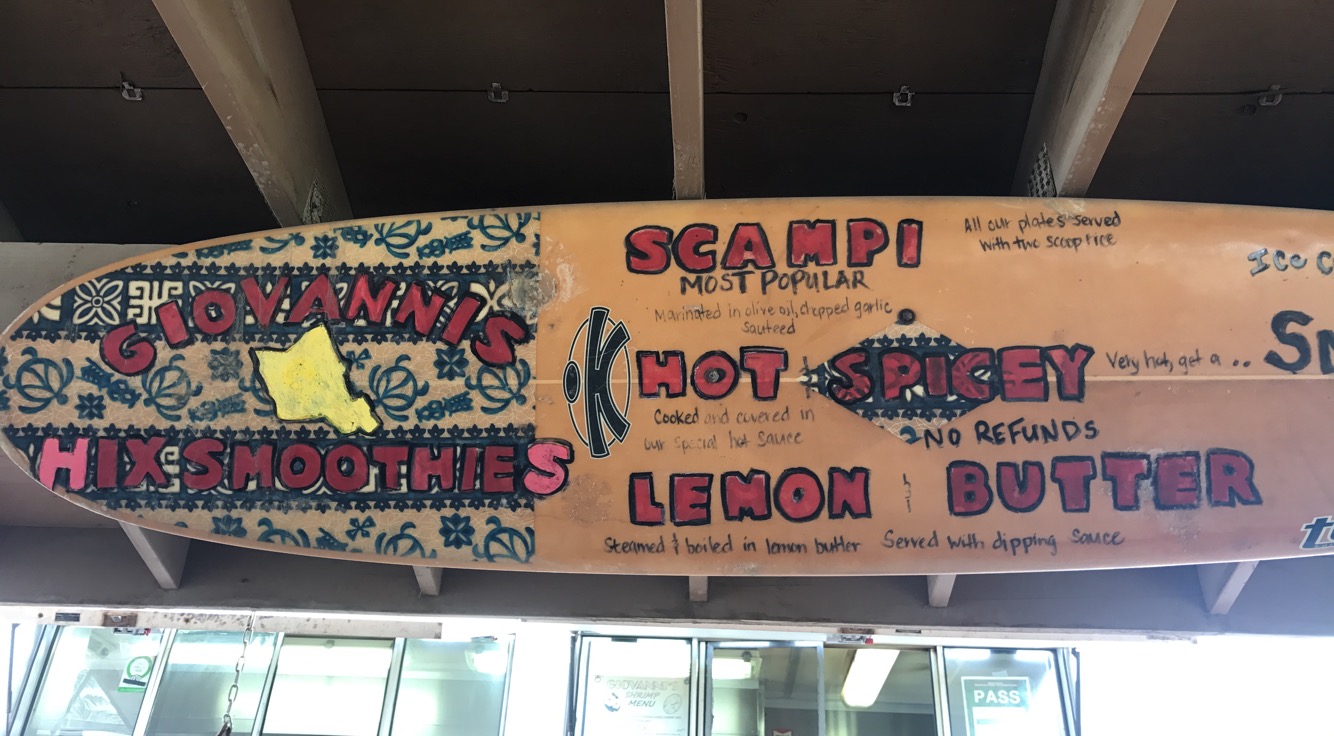 GIOVANNIS
HIXSMOOTHIES
SCAMPI
MOST POPULAR
Marinated in olive oil, chopped garlic
sauteed
All our plates served
with two scoop rice
K HOT SPICEY
Very hot, get a ..
Cooked and covered in
our special hot sauce
NO REFUNDS
LEMON BUTTER
Steamed & boiled in lemon butter Served with dipping sauce
Ice
GIOVANNI'S
SHRIMP
MENU
PASS